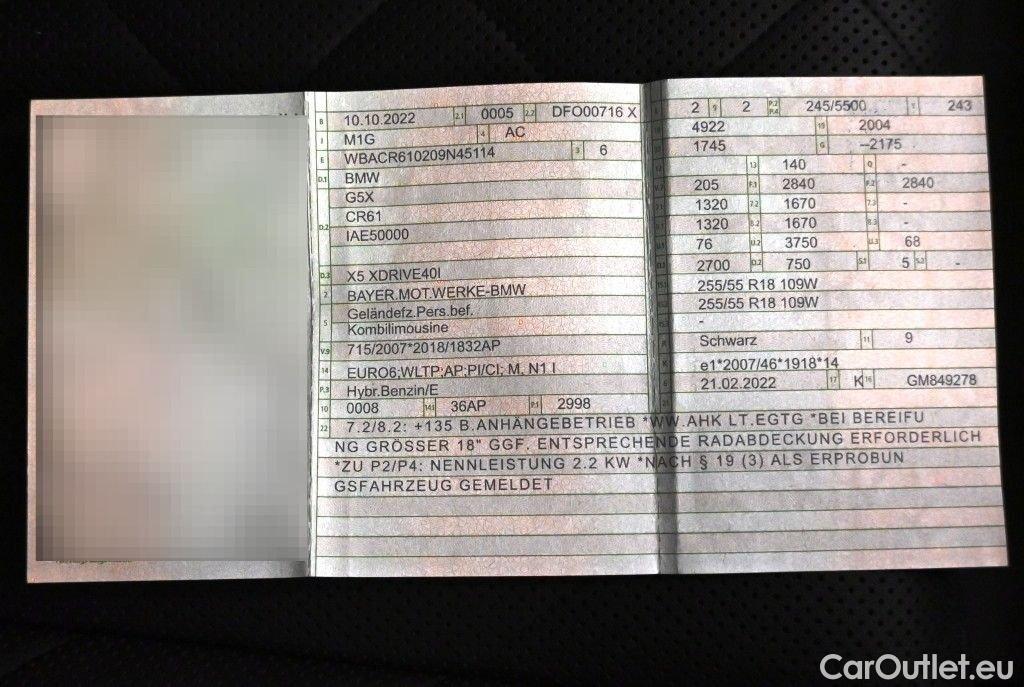 B 10.10.2022 2.1 0005 2.2 DFO00716 X
J M1G 4 AC
E WBACR610209N45114 3 6
D.1 BMW
G5X
D.2 CR61
IAE50000
D.3 X5 XDRIVE40I
2 BAYER.MOT.WERKE-BMW
5 Geländefz.Pers.bef.
Kombilimousine
V.9 715/2007*2018/1832AP
14 EURO6;WLTP;AP;PI/CI; M, N1 I
P.3 Hybr.Benzin/E
10 0008 14.1 36AP P.1 2998
2 9 2 P.2 P.4 245/5500 T 243
4922 19 2004
1745 G –2175
13 140 Q -
205 F.1 2840 F.2 2840
1320 7.2 1670 7.3 -
1320 8.2 1670 8.3 -
76 U.2 3750 U.3 68
2700 O.2 750 S.1 5 S.2 -
255/55 R18 109W
255/55 R18 109W
-
R Schwarz 11 9
K e1*2007/46*1918*14
6 21.02.2022 17 K 16 GM849278
22 7.2/8.2: +135 B.ANHÄNGEBETRIEB *WW.AHK LT.EGTG *BEI BEREIFU
NG GRÖSSER 18" GGF. ENTSPRECHENDE RADABDECKUNG ERFORDERLICH
*ZU P2/P4: NENNLEISTUNG 2.2 KW *NACH § 19 (3) ALS ERPROBUN
GSFAHRZEUG GEMELDET
CarOutlet.eu